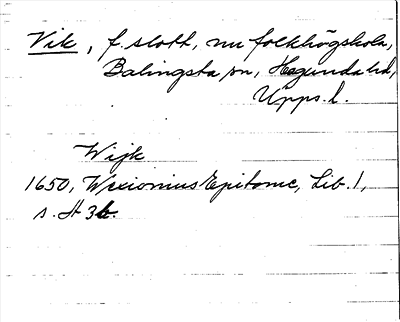 Vik, f. slott, nu folkhögskola,
Balingsta sn, Hagunda hd,
Upps. l.
Wijk
1650, Wexionius Epitome, Lib. 1,
s. H 3b.